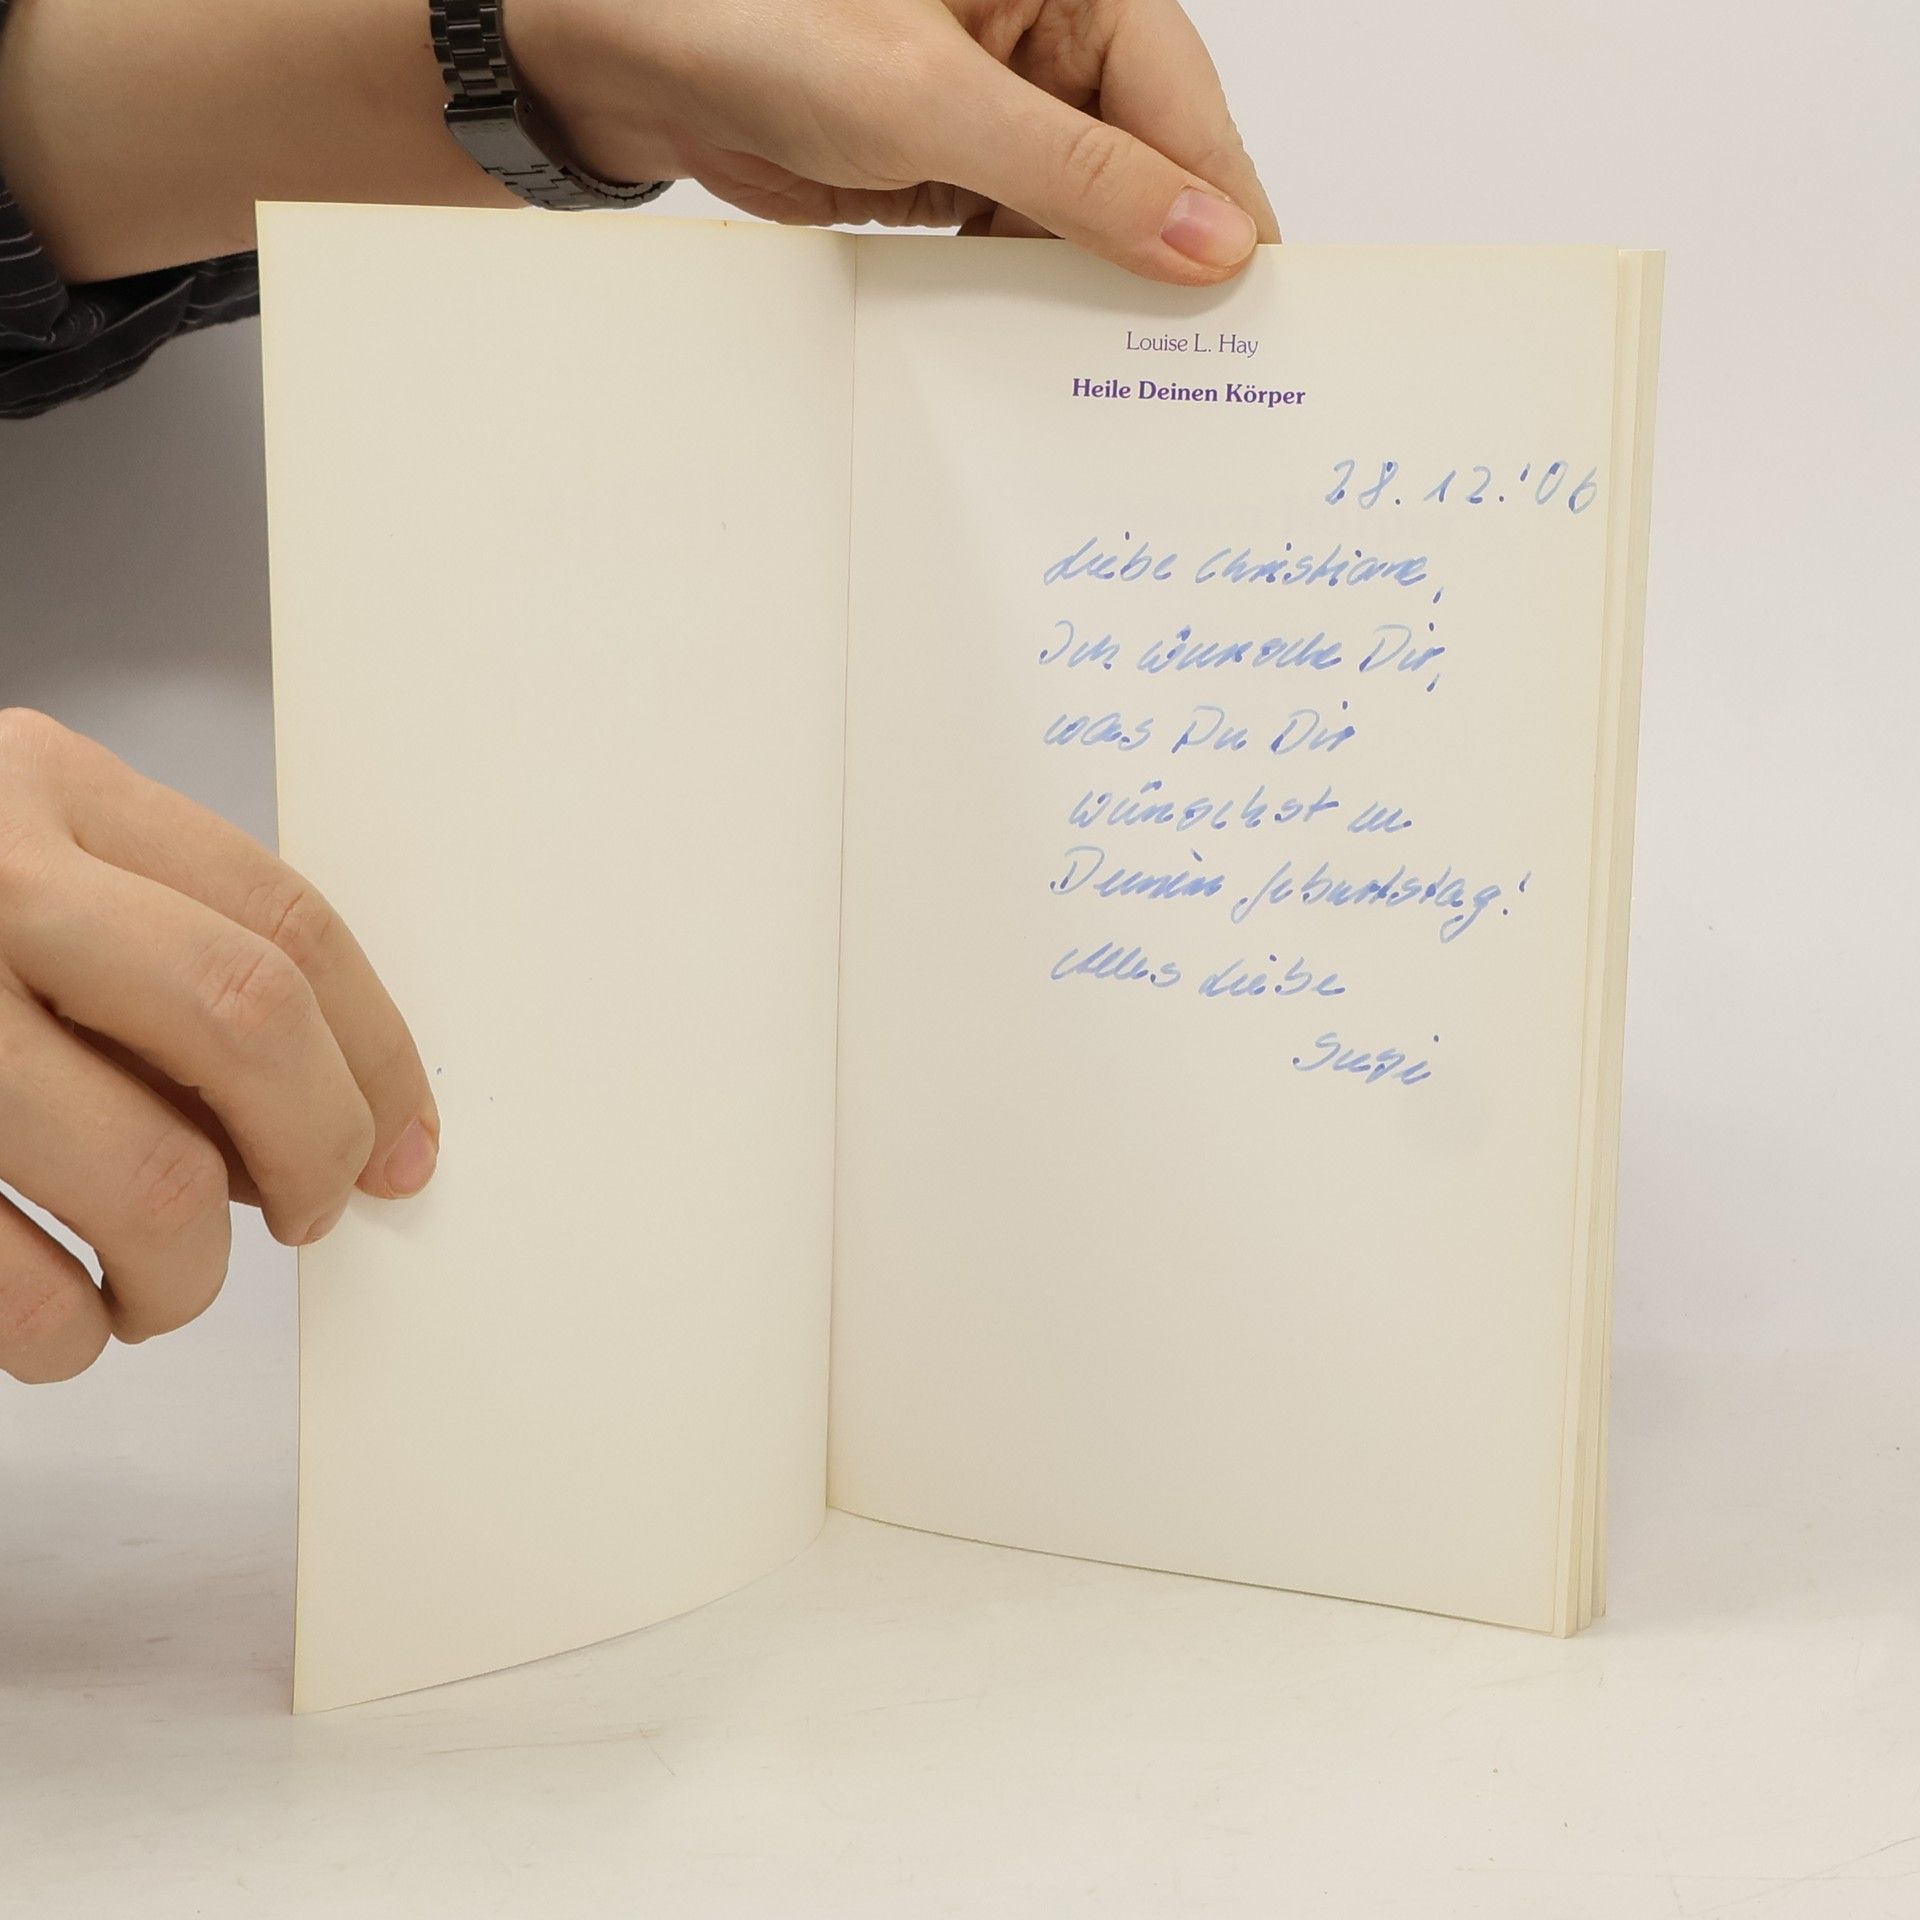 Louise L. Hay
Heile Deinen Körper
28.12.'06
Liebe Christiane,
Ich wünsche Dir,
was Du Dir
wünschst zu
Deinem Geburtstag!
Alles Liebe
Susi